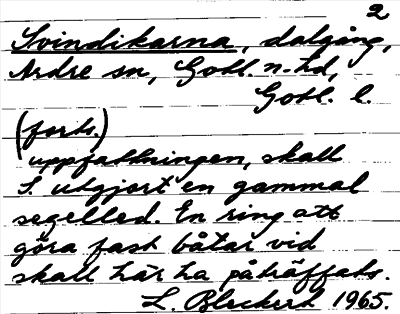 2
Svindikarna, dalgång,
Ardre sn, Gotl. n. hd,
Gotl. l.
(forts.)
uppfattningen, skall
S. utgjort en gammal
segelled. En ring att
göra fast båtar vid
skall här ha påträffats.
L. Bleckert 1965.